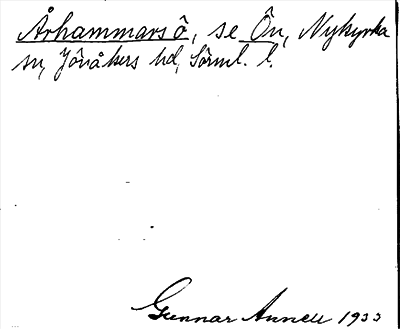 Århammarsö, se Ön, Nykyrka
sn, Jönåkers hd, Sörml. l.
Gunnar Annell 1933